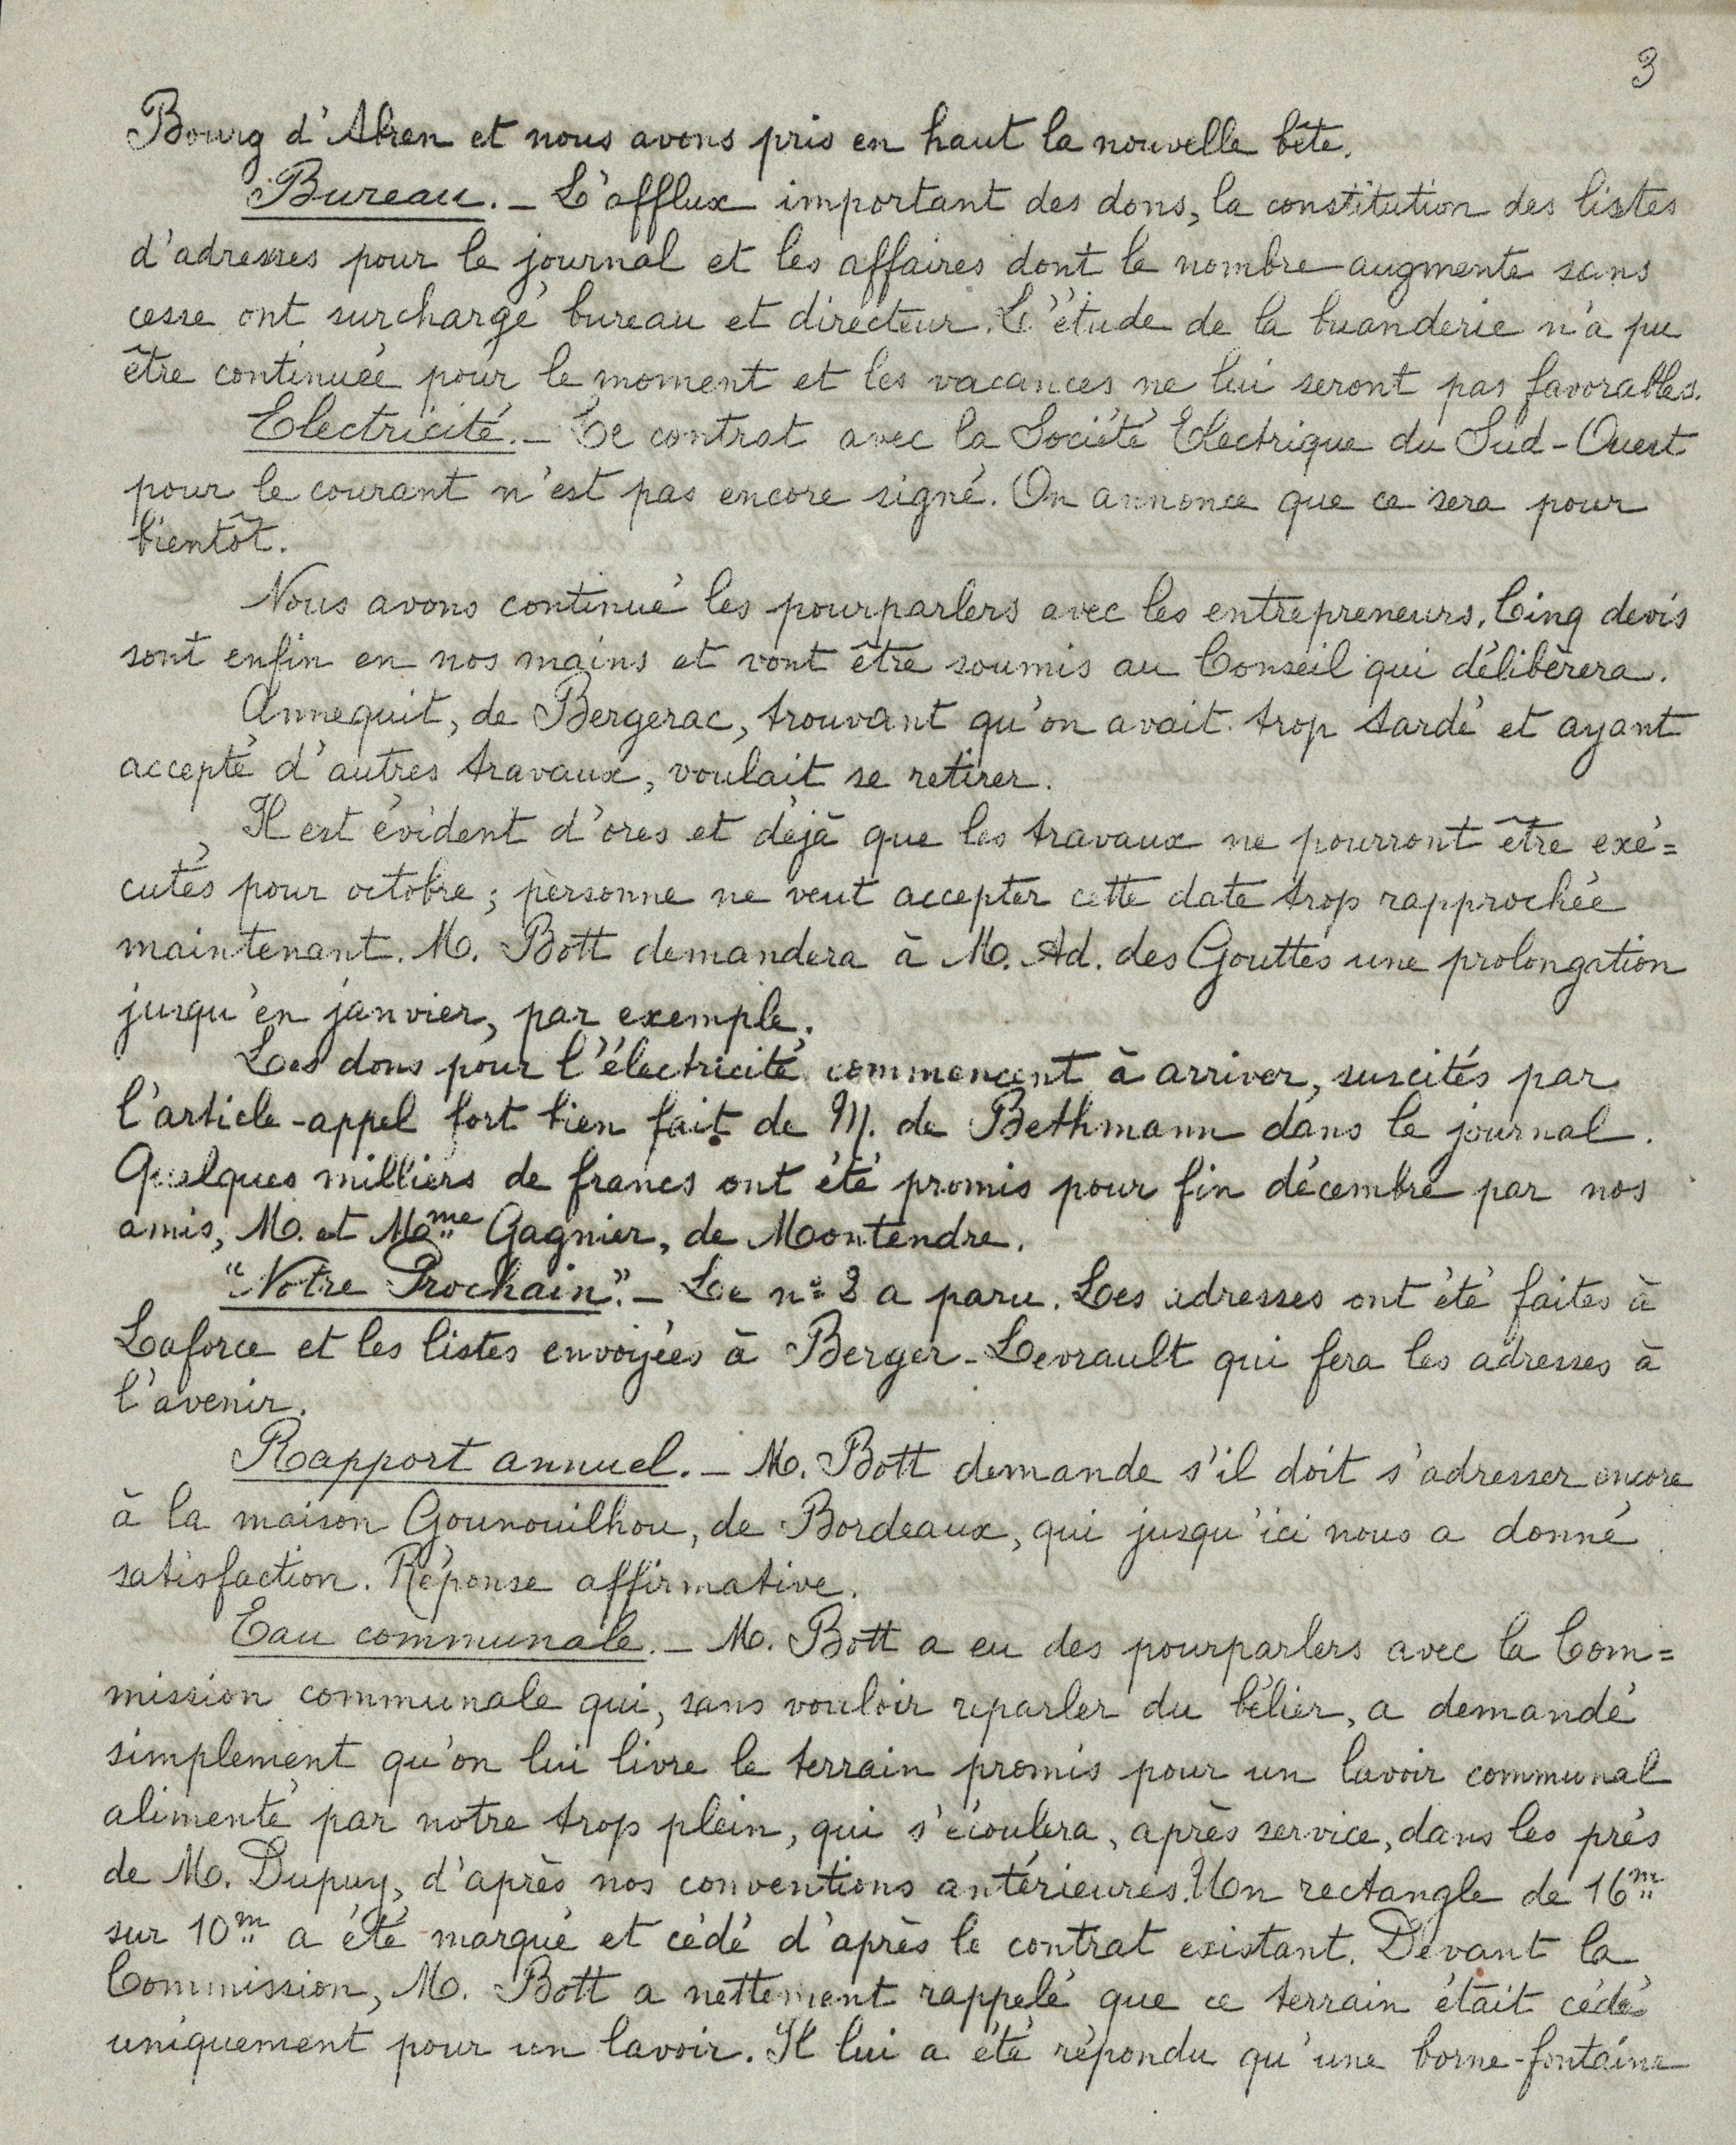 3
Bourg d'Abren et nous avons pris en haut la nouvelle bête.
Bureau. - L'afflux important des dons, la constitution des listes
d'adresses pour le journal et les affaires dont le nombre augmente sans
cesse ont surchargé bureau et directeur. L'étude de la buanderie n'a pu
être continuée pour le moment et les vacances ne lui seront pas favorables.
Electricité. - Le contrat avec la Société Electrique du Sud-Ouest
pour le courant n'est pas encore signé. On annonce que ce sera pour
bientôt.
Nous avons continué les pourparlers avec les entrepreneurs. Cinq devis
sont enfin en nos mains et vont être soumis au Conseil qui délibèrera.
Annequit, de Bergerac, trouvant qu'on avait trop tardé et ayant
accepté d'autres travaux, voulait se retirer.
Il est évident d'ores et déjà que les travaux ne pourront être exé=
cutés pour octobre ; personne ne veut accepter cette date trop rapprochée
maintenant. M. Bott demandera à M. Ad. des Gouttes une prolongation
jusqu'en janvier, par exemple.
Les dons pour l'électricité commencent à arriver, suscités par
l'article-appel fort bien fait de M. de Bethmann dans le journal.
Quelques milliers de francs ont été promis pour fin décembre par nos
amis, M. et Mme Gagnier, de Montendre.
"Notre Prochain". - Le n° 2 a paru. Les adresses ont été faites à
Laforce et les listes envoyées à Berger-Levrault qui fera les adresses à
l'avenir.
Rapport annuel. - M. Bott demande s'il doit s'adresser encore
à la maison Gounouilhou, de Bordeaux, qui jusqu'ici nous a donné
satisfaction. Réponse affirmative.
Eau communale. - M. Bott a eu des pourparlers avec la Com=
mission communale qui, sans vouloir reparler du bélier, a demandé
simplement qu'on lui livre le terrain promis pour un lavoir communal
alimenté par notre trop plein, qui s'écoulera, après service, dans les prés
de M. Dupuy, d'après nos conventions antérieures. Un rectangle de 16m
sur 10m a été marqué et cédé d'après le contrat existant. Devant la
Commission, M. Bott a nettement rappelé que ce terrain était cédé
uniquement pour un lavoir. Il lui a été répondu qu'une borne-fontaine